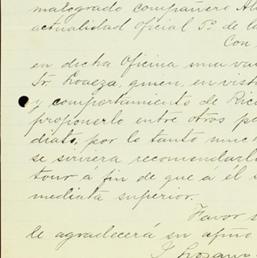 malogrado compañero Al
actualidad Oficial 5º. de la
Con
en dicha Oficina una va
Sr. Loaeza, quien, en vist
y comportamiento de Rica
proponerlo entre otros pa
diato, por lo tanto much
se sirviera recomendarlo
tour a fin de que á él i
mediata superior.
Favor s
le agradecerá su afmo